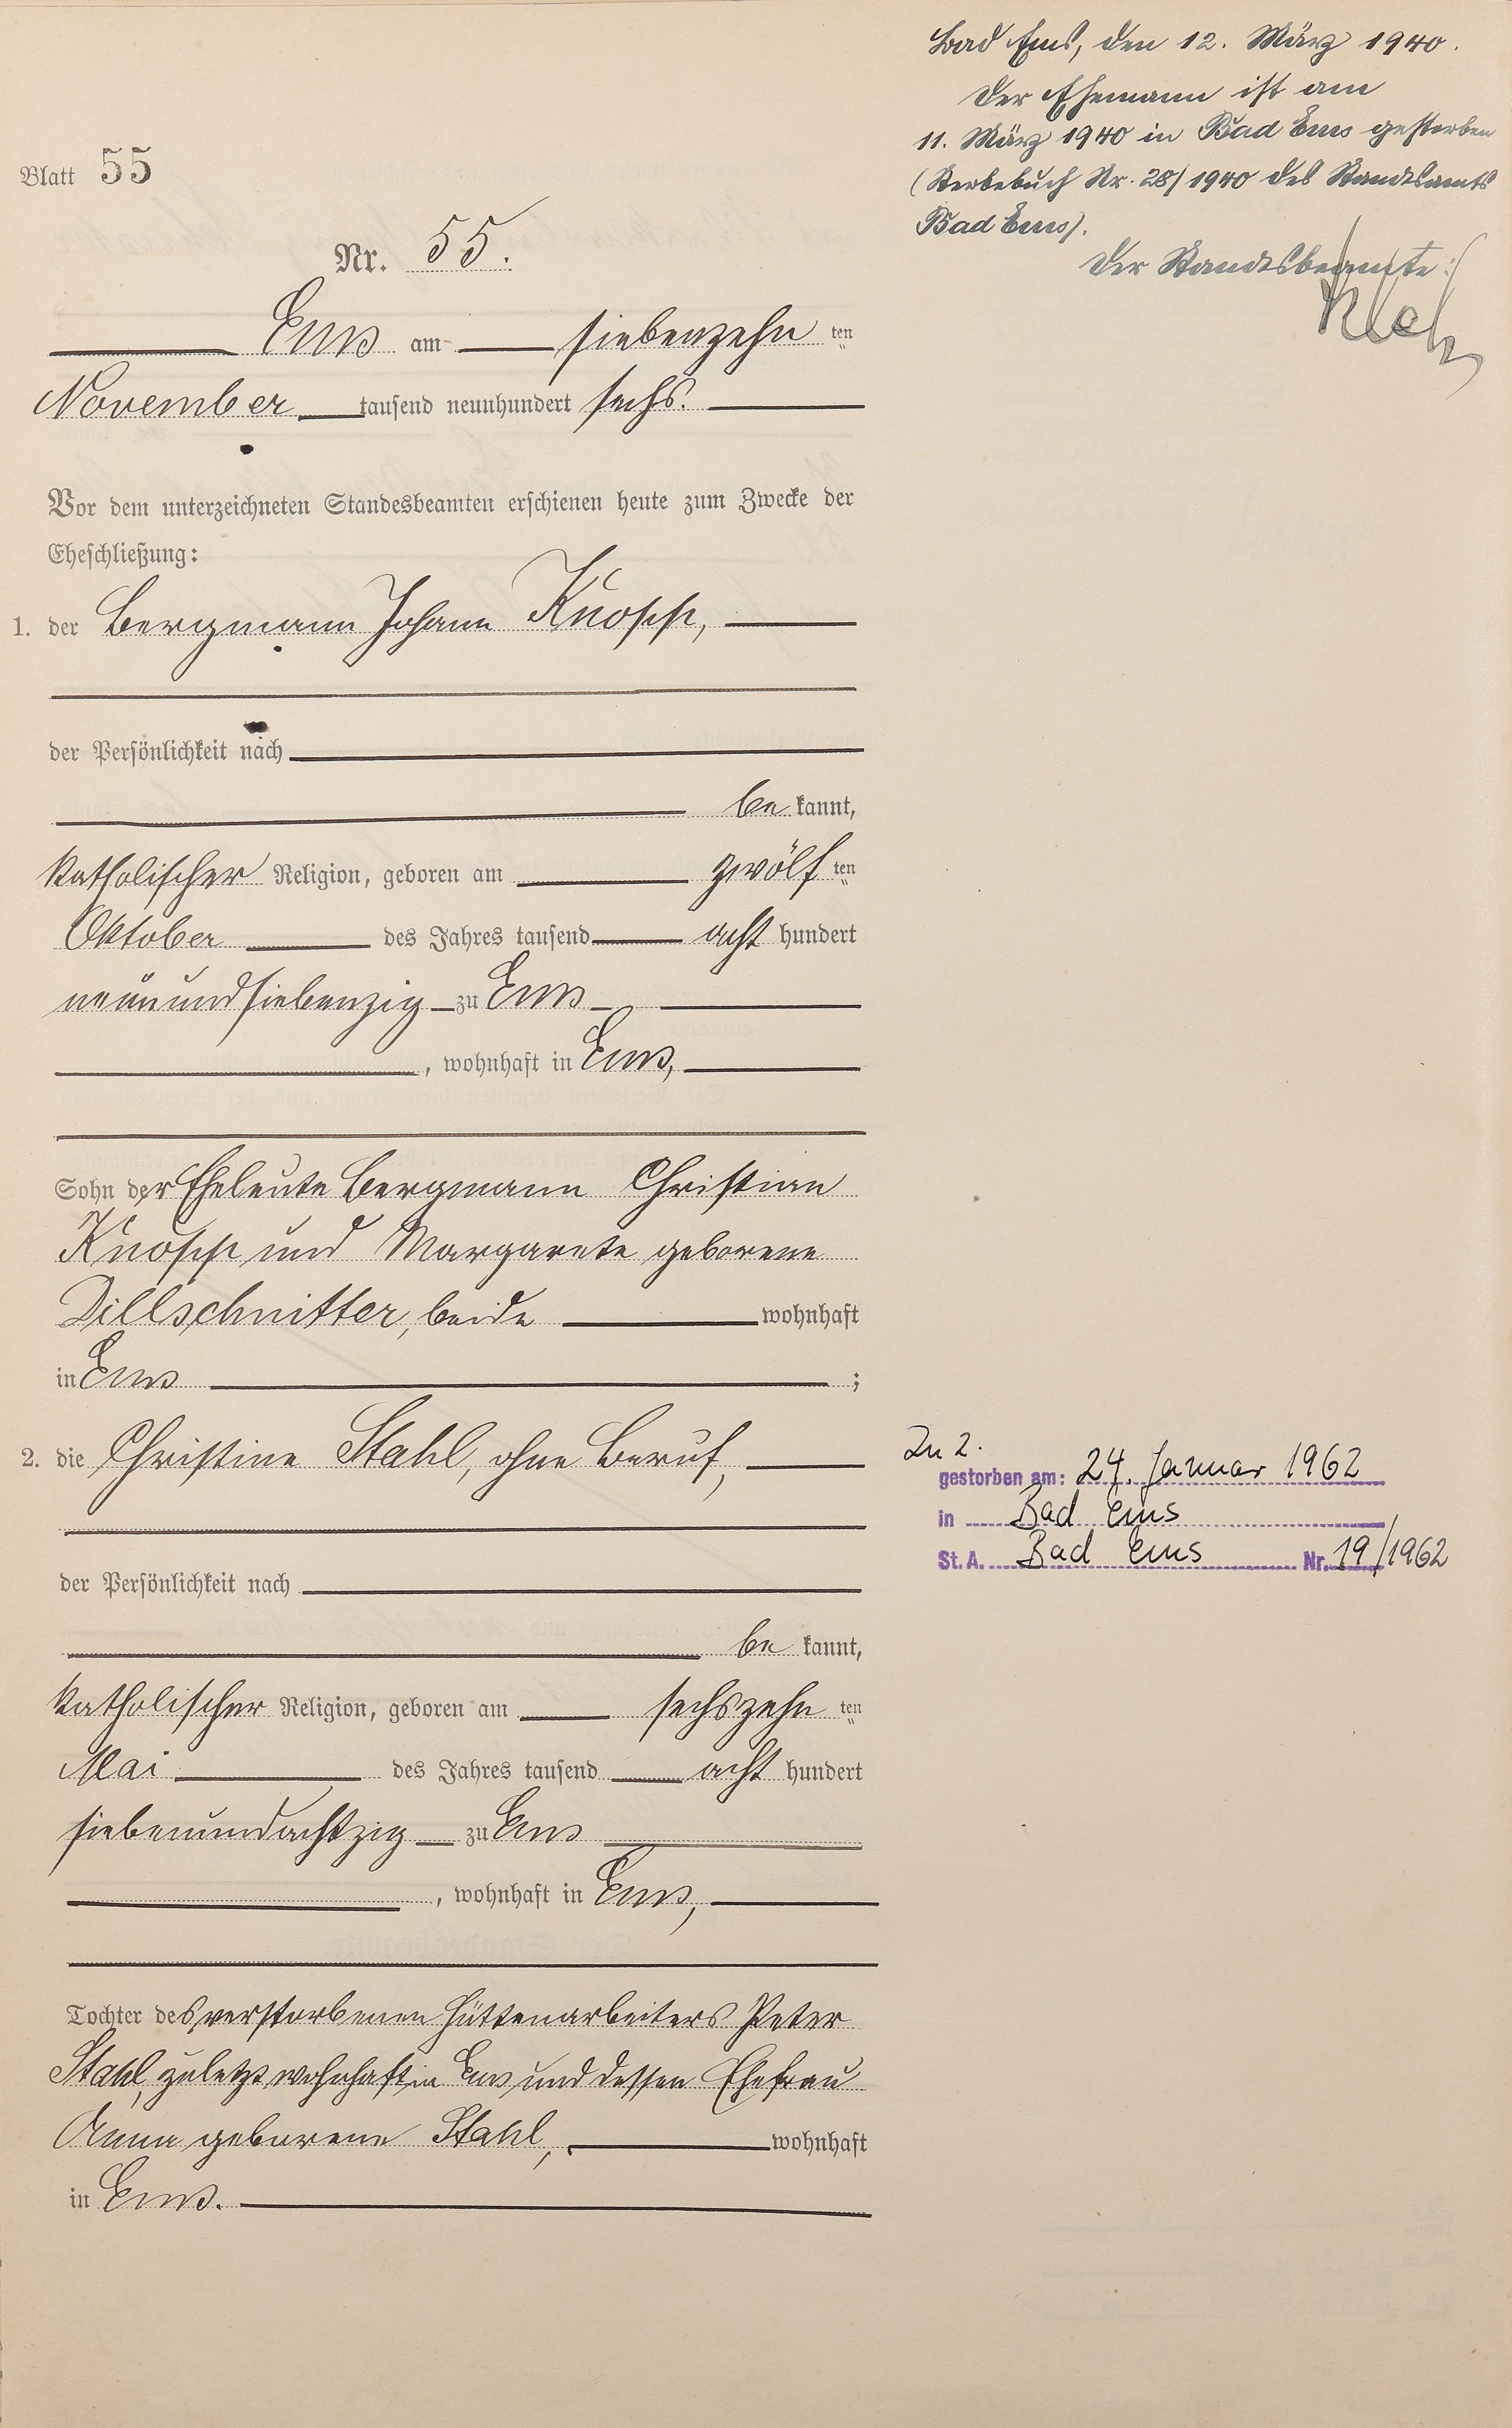 Bad Ems, den 12. März 1940.
Der Ehemann ist am
11. März 1940 in Bad Ems gestorben
(Sterbebuch Nr. 28/1940 des Standesamts
Bad Ems).
Der Standesbeamte:
Blatt 55
Nr. 55.
Ems am siebenzehn ten
November tausend neunhundert sechs.
Vor dem unterzeichneten Standesbeamten erschienen heute zum Zwecke der
Eheschließung:
1. der Bergmann Johann Knopp,
der Persönlichkeit nach
be kannt,
katholischer Religion, geboren am zwölf ten
Oktober des Jahres tausend acht hundert
neunundsiebenzig zu Ems
, wohnhaft in Ems,
Sohn der Eheleute Bergmann Christian
Knopp und Margarete geborene
Dillschnitter, beide wohnhaft
in Ems ;
2. die Christine Stahl, ohne Beruf,
der Persönlichkeit nach
be kannt,
katholischer Religion, geboren am sechszehn ten
Mai des Jahres tausend acht hundert
siebenundachtzig zu Ems
, wohnhaft in Ems,
Tochter des verstorbenen Hüttenarbeiters Peter
Stahl, zuletzt wohnhaft in Ems und dessen Ehefrau
Anna geborene Stahl, wohnhaft
in Ems.
Zu 2.
gestorben am: 24. Januar 1962
in Bad Ems
St. A. Bad Ems Nr. 19/1962